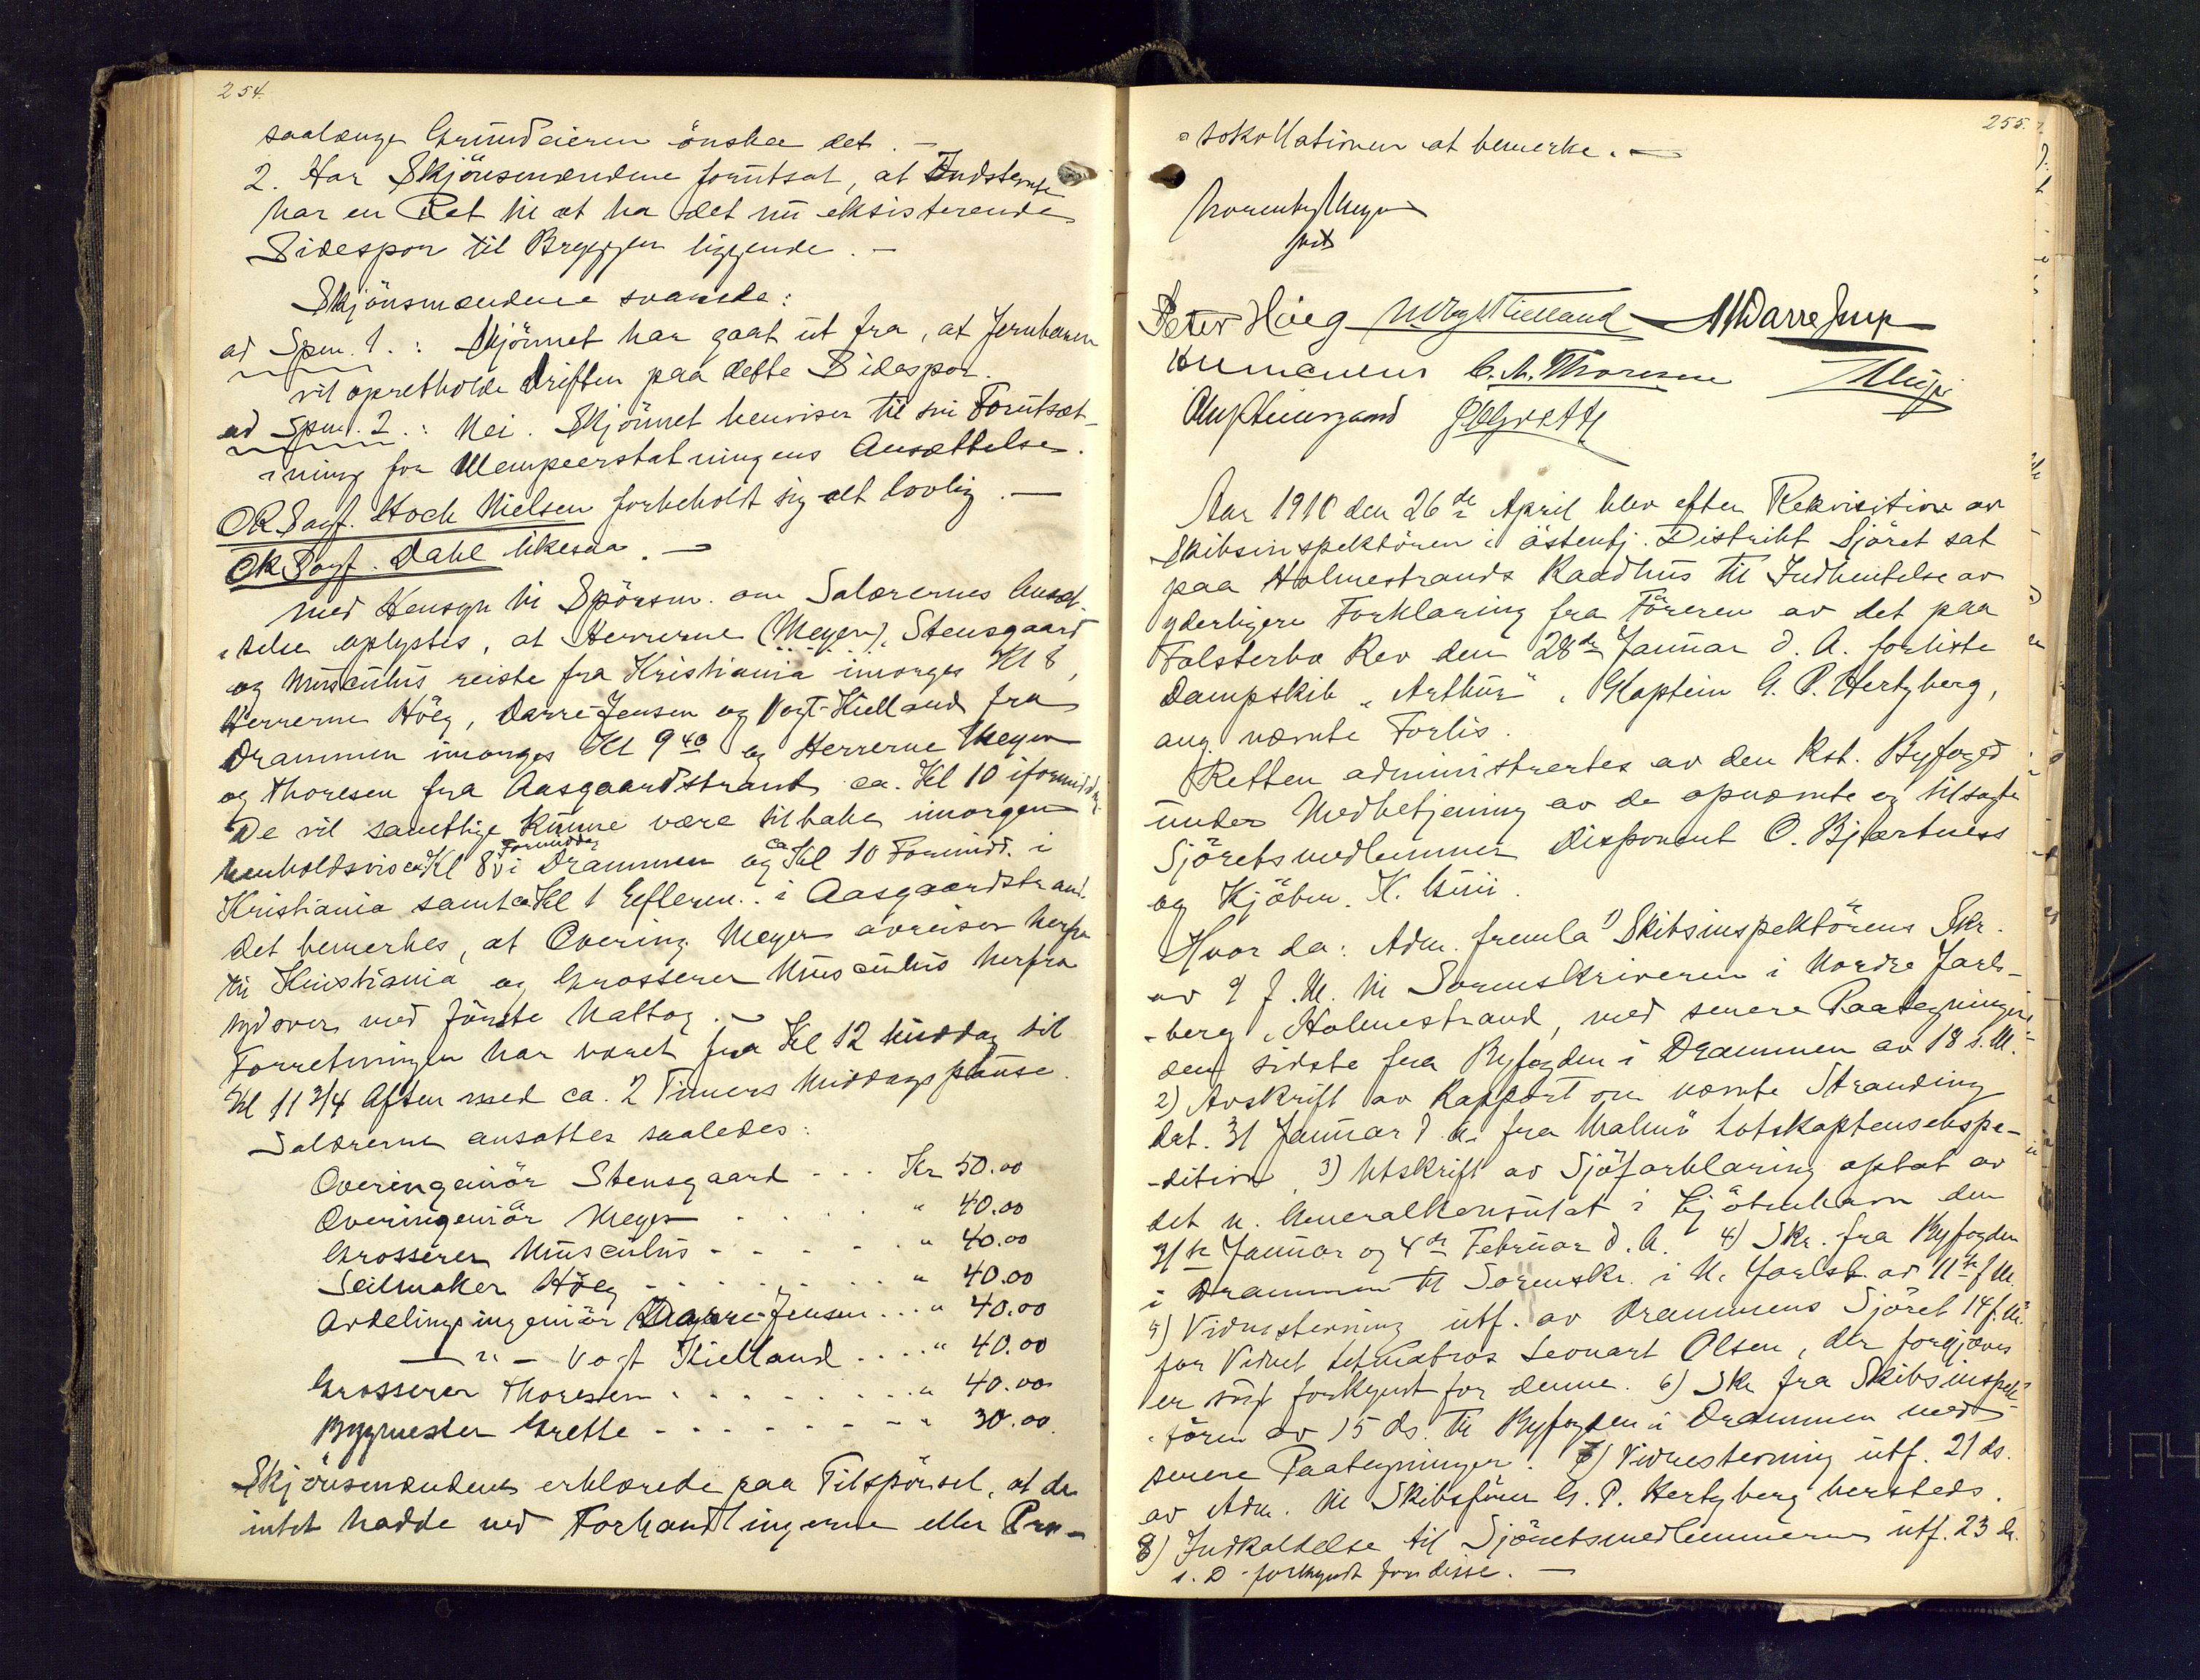 254.
saalænge Grundeieren önsker det. –
2. Har Skjönsmændene forutsat, at Indstevnte
har en Ret til at ha det nu eksisterende
Sidespor til Bryggen liggende. –
Skjönsmændene svarede:
ad Spm. 1.: Skjönnet har gaat ut fra, at Jernbanen
vil opretholde Driften paa dette Sidespor.
ad Spm. 2.: Nei. Skjönnet henviser til sin Forutsæt-
ning for Ulempeerstatningens Ansættelse.
OR Sagf. Hoch Nielsen forbeholdt sig alt lovlig. –
OR Sagf. Dahl likesaa. –
Med Hensyn til Spörsm. om Salærernes Ansæt-
telse oplystes, at Herrerne (Meyer), Stensgaard
og Musculus reiste fra Kristiania imorges Kl 8,
Herrerne Höeg, Darre-Jensen og Vogt-Kielland fra
Drammen imorges Kl 9 40 og Herrerne Meyer
og Thoresen fra Aasgaardstrand ca. Kl 10 iformiddag.
De vil samtlige kunne være tilbake imorgen
henholdsvis ca Kl 8 Formiddag i Drammen og ca Kl 10 Formidd. i
Kristiania samt ca Kl 1 Efterm. i Aasgaardstrand.
Det bemerkes, at Overing. Meyer avreiser herfra
til Kristiania og Grosserer Musculus herfra
sydover med förste Nattog. –
Forretningen har varet fra Kl 12 Middag til
Kl 11 3/4 Aften med ca. 2 Timers Middagspause.
Salærerne ansattes saaledes:
Overingeniör Stensgaard - - . Kr 50.00
Overingeniör Meyer - . . . " 40.00
Grosserer Musculus - - - - . " 40.00
Seilmaker Höeg - . . . . . " 40.00
Avdelingsingeniör Darre-Jensen . . . " 40.00
— " — Vogt Kielland . . . . " 40.00
Grosserer Thoresen . . . . . . . " 40.00
Bygmester Grette - . . - - - - " 30.00.
Skjönsmændene erklærede paa Tilspörsel, at de
intet hadde ved Forhandlingerne eller Pro-
255.
tokollationen at bemerke. –
Peter Höeg Vogt Kielland Darre Jensen
C. M. Thoresen
Grette
Aar 1910 den 26de April blev efter Rekvisition av
Skibsinspektören i östenfj. Distrikt Sjöret sat
paa Holmestrands Raadhus til Indhentelse av
yderligere Forklaring fra Föreren av det paa
Falsterbo Rev den 28de Januar d. A. forliste
Dampskib "Arthur", Kaptein G. P. Hertzberg,
ang. nævnte Forlis.
Retten administrertes av den Kst. Byfoged
under Medbetjening av de opnævnte og tilsagte
Sjöretsmedlemmer Disponent O. Bjærtness
og Kjöbm. K. Gui.
Hvor da: Adm. fremla 1) Skibsinspektörens Skr.
av 9 f. M. til Sorenskriveren i Nordre Jarls-
-berg, Holmestrand, med senere Paategninger,
den sidste fra Byfogden i Drammen av 18 s. M.
2) Avskrift av Rapport om nævnte Stranding
dat. 31 Januar d. A. fra Malmö Lotskaptensekspe-
-dition 3) Utskrift av Sjöforklaring optat av
det n. Generalkonsulat i Kjöbenhavn den
31te Januar og 4de Februar d. A. 4) Skr. fra Byfogden
i Drammen til Sorenskr. i N. Jarlsb. av 11te f. M.
5) Vidnestevning utf. av Drammens Sjöret 14 f. M.
for Vidnet Letmatros Leonart Olsen, der forgjæves
er sögt forkyndt for denne. 6) Skr fra Skibsinspek-
tören av 15 ds. til Byfogden i Drammen med
senere Paategninger. 7) Vidnestevning utf. 21 ds.
av Adm. til Skibsförer G. P. Hertzberg hersteds.
8) Indkaldelse til Sjöretsmedlemmerne utf. 23 ds.
s. D. forkyndt for disse. –